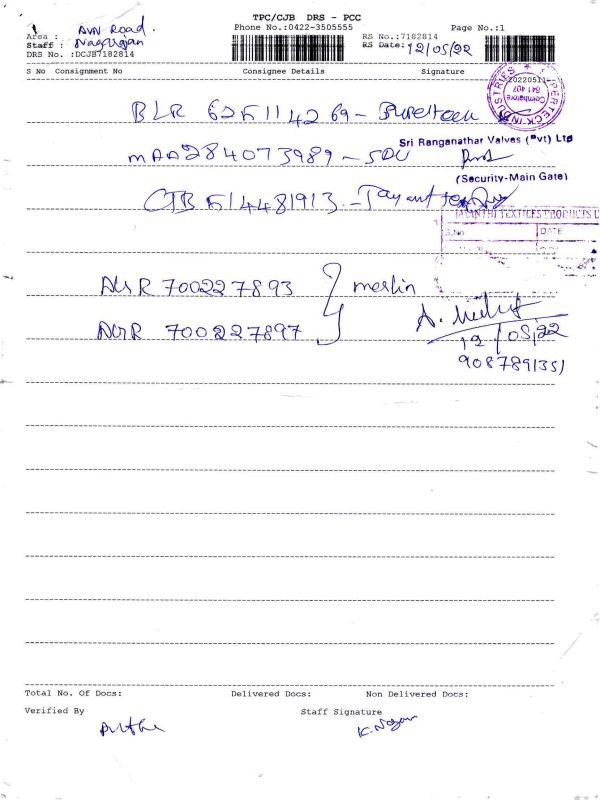 TPC/CJB DRS - PCC
Phone No.:0422-3505555
Page No.:1
Area : AVN Road.
RS No.:7182814
Staff : Nagarajan
RS Date: 12/05/22
DRS No. :DCJB7182814
S No Consignment No Consignee Details Signature
20220511
Coimbatore
641 407
BLR 625114269 -
Sri Ranganathar Valves (Pvt) Ltd
MAA 284073989 -
(Security-Main Gate)
CTB 514481913 -
JAYANTHI TEXTILES PRODUCTS
S.No DATE
700227893 merlin
700227897
12/05/22
9087891351
Total No. Of Docs: Delivered Docs: Non Delivered Docs:
Verified By Staff Signature